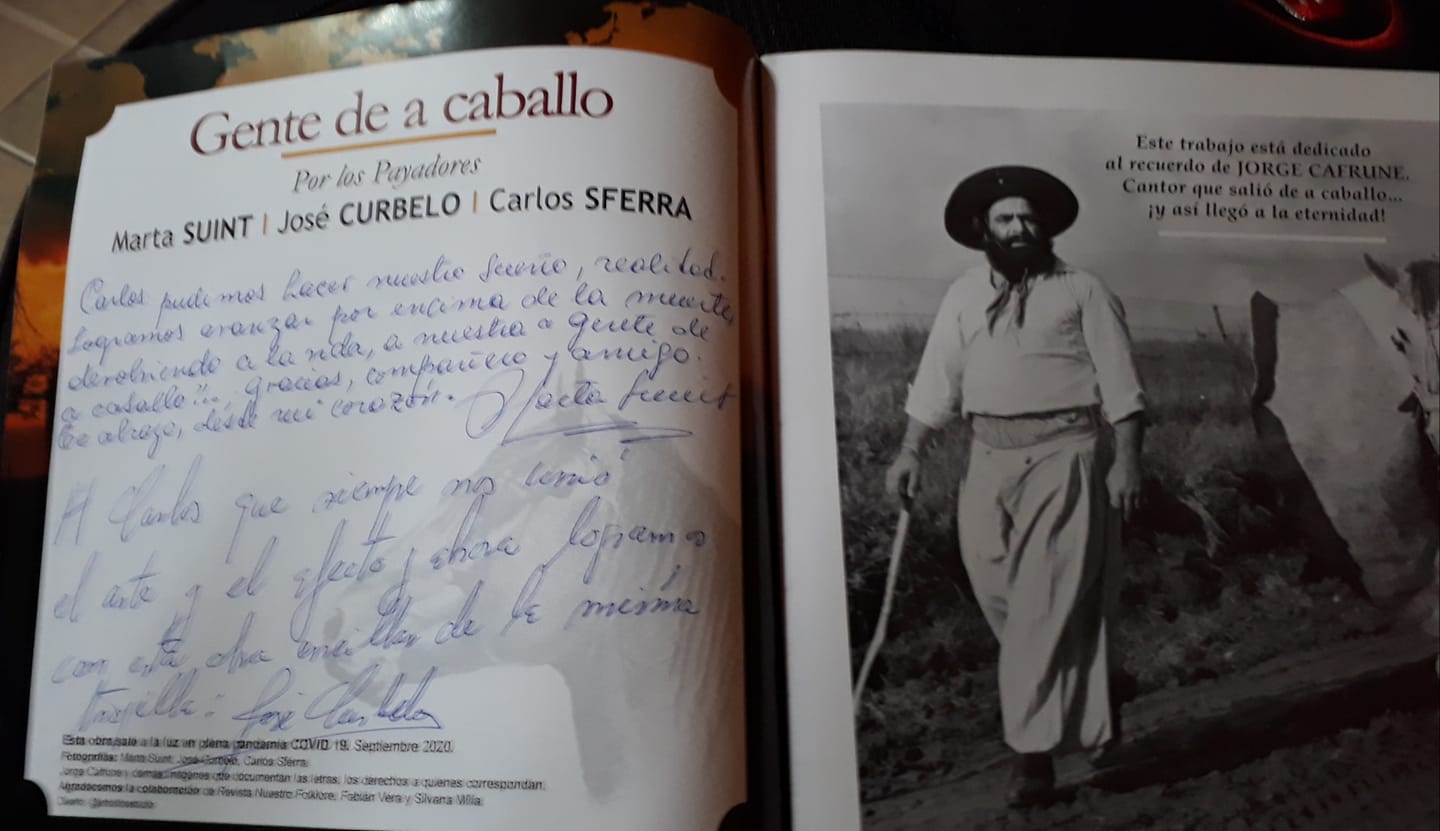 Gente de a caballo
Por los Payadores
Marta SUINT | José CURBELO | Carlos SFERRA
Carlos pudimos hacer nuestro sueño, realidad.
Logramos avanzar por encima de la muerte,
devolviendo a la vida, a nuestra " gente de
a caballo"... Gracias, compañero y amigo.
Te abrazo, desde mi corazón. Marta Suint
A Carlos que siempre nos unió
el arte y el afecto y ahora logramos
con esta obra ensillar de la misma
tropilla: José Curbelo
Esta obra sale a la luz en plena pandemia COVID 19. Septiembre 2020.
Fotografías: Marta Suint, José Curbelo, Carlos Sferra.
Jorge Cafrune y demás imágenes que documentan las letras; los derechos a quienes correspondan.
Agradecemos la colaboración de Revista Nuestro Folklore, Fabián Vera y Silvana Milia.
Este trabajo está dedicado
al recuerdo de JORGE CAFRUNE.
Cantor que salió de a caballo...
¡y así llegó a la eternidad!